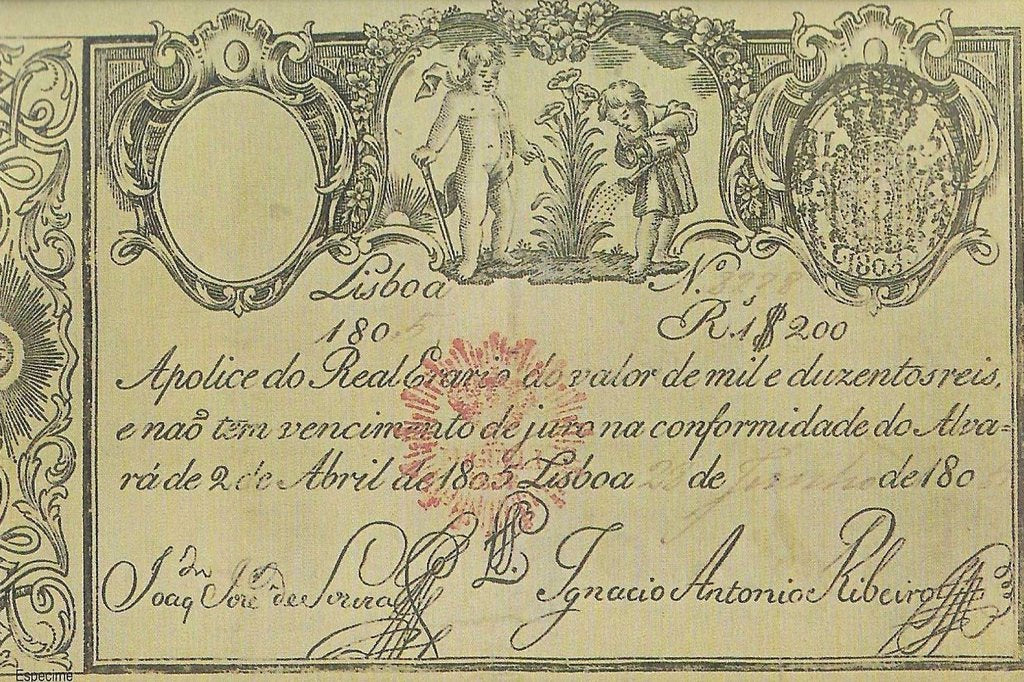 1805
Lisboa
N.º 8278
1805
R.s 1$200
Apolice do Real Erario do valor de mil e duzentos reis,
e naõ tem vencimento de juro na conformidade do Alva=
rá de 2 de Abril de 1805 Lisboa de Junho de 180
Joaq.m Joze de Souza
Ignacio Antonio Ribeiro
Especime